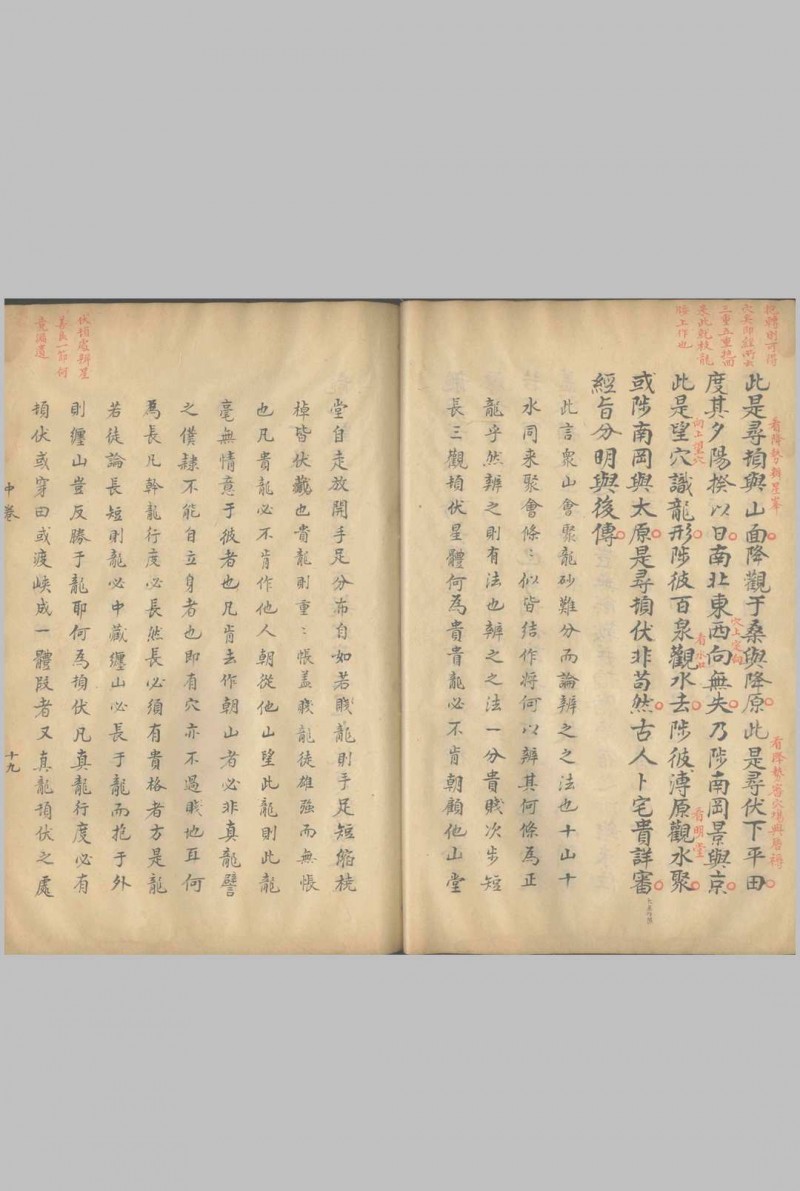 此是尋頓與山面降觀于桑與降原此是尋伏下平田
度其夕陽揆以日南北東西向無失乃陟南岡景與京
此是望穴識龍形陟彼百泉觀水去陟彼溥原觀水聚
或陟南岡與太原是尋頓伏非苟然古人卜宅貴詳審
經旨分明與後傳
此言衆山會聚龍砂難分而論辨之之法也十山十
水同来聚會條〻似皆結作将何以辨其何條為正
龍乎然辨之則有法也辨之之法一分貴賤次步短
長三觀頓伏星體何為貴貴龍必不肯朝顧他山堂
堂自走放開手足分布自如若賤龍則手足短縮橈
棹皆伏藏也貴龍則重〻帳盖賤龍徒雄强而無帳
也凡貴龍必不肯作他人朝從他山望此龍則此龍
毫無情意于彼者也凡肯去作朝山者必非真龍譬
之僕隷不能自立身者也即有穴亦不過賤地耳何
為長凡幹龍行度必長然長必須有貴格者方是龍
若徒論長短則龍必中藏纏山必長于龍而抱于外
則纏山豈反勝于龍耶何為頓伏凡真龍行度必有
頓伏或穿田或渡峽成一體段者又真龍頓伏之處
看降勢辨星峯
向上望穴
穴上定向
看水口
看明堂
三重五重抱回
来此乾枝龍
伏頓處辨星
中卷
十九